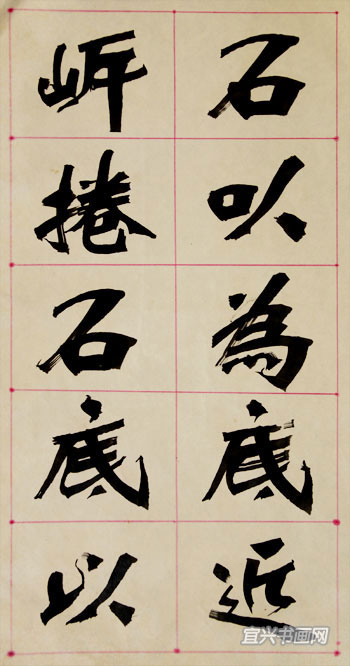 石以為底近
岸捲石底以
宜兴书画网